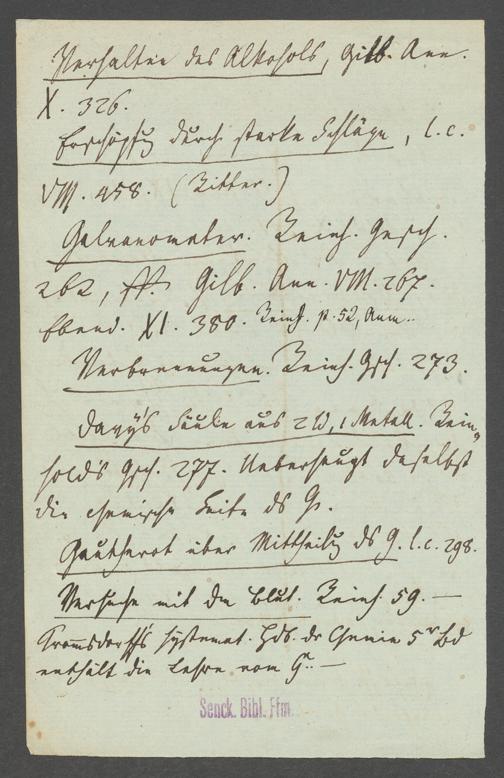 Verhalten des Alkohols, Gilb. Ann.
X. 326.
Erschöpfg durch starke Schläge, l. c.
VIII. 458. (Ritter.)
Galvanometer. Reinh. Gesch.
262, ff. Gilb. Ann. VIII. 267.
Ebend. XI. 380. Reinh. p. 52, Anm.
Verbrennungen. Reinh. Gsch. 273.
Davy's Säule aus 2 W, 1 Metall. Rein-
hold's Gsch. 277. Ueberhaupt daselbst
die chemische Seite ds G.
Gautherot über Mittheilg ds G. l. c. 298.
Versuche mit dem Blut. Reinh. 59. —
Tromsdorff's systemat. Hdb. dr Chemie 5r Bd
enthält die Lehre vom G. —
Senck. Bibl. Ffm.